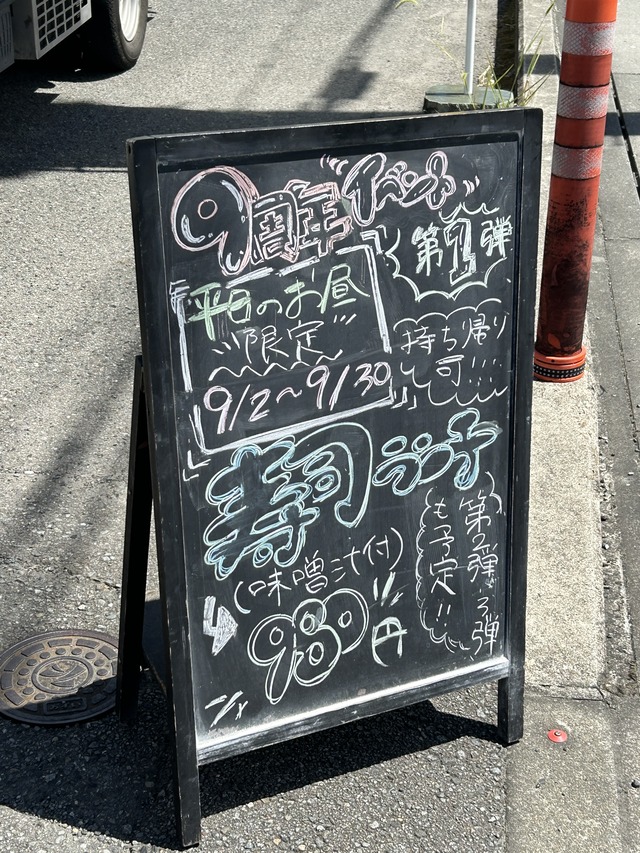 9周年イベント
第1弾
平日のお昼
限定
9/2～9/30
持ち帰り
可!!!
寿司ランチ
(味噌汁付)
980円
第2弾、3弾
も予定!!